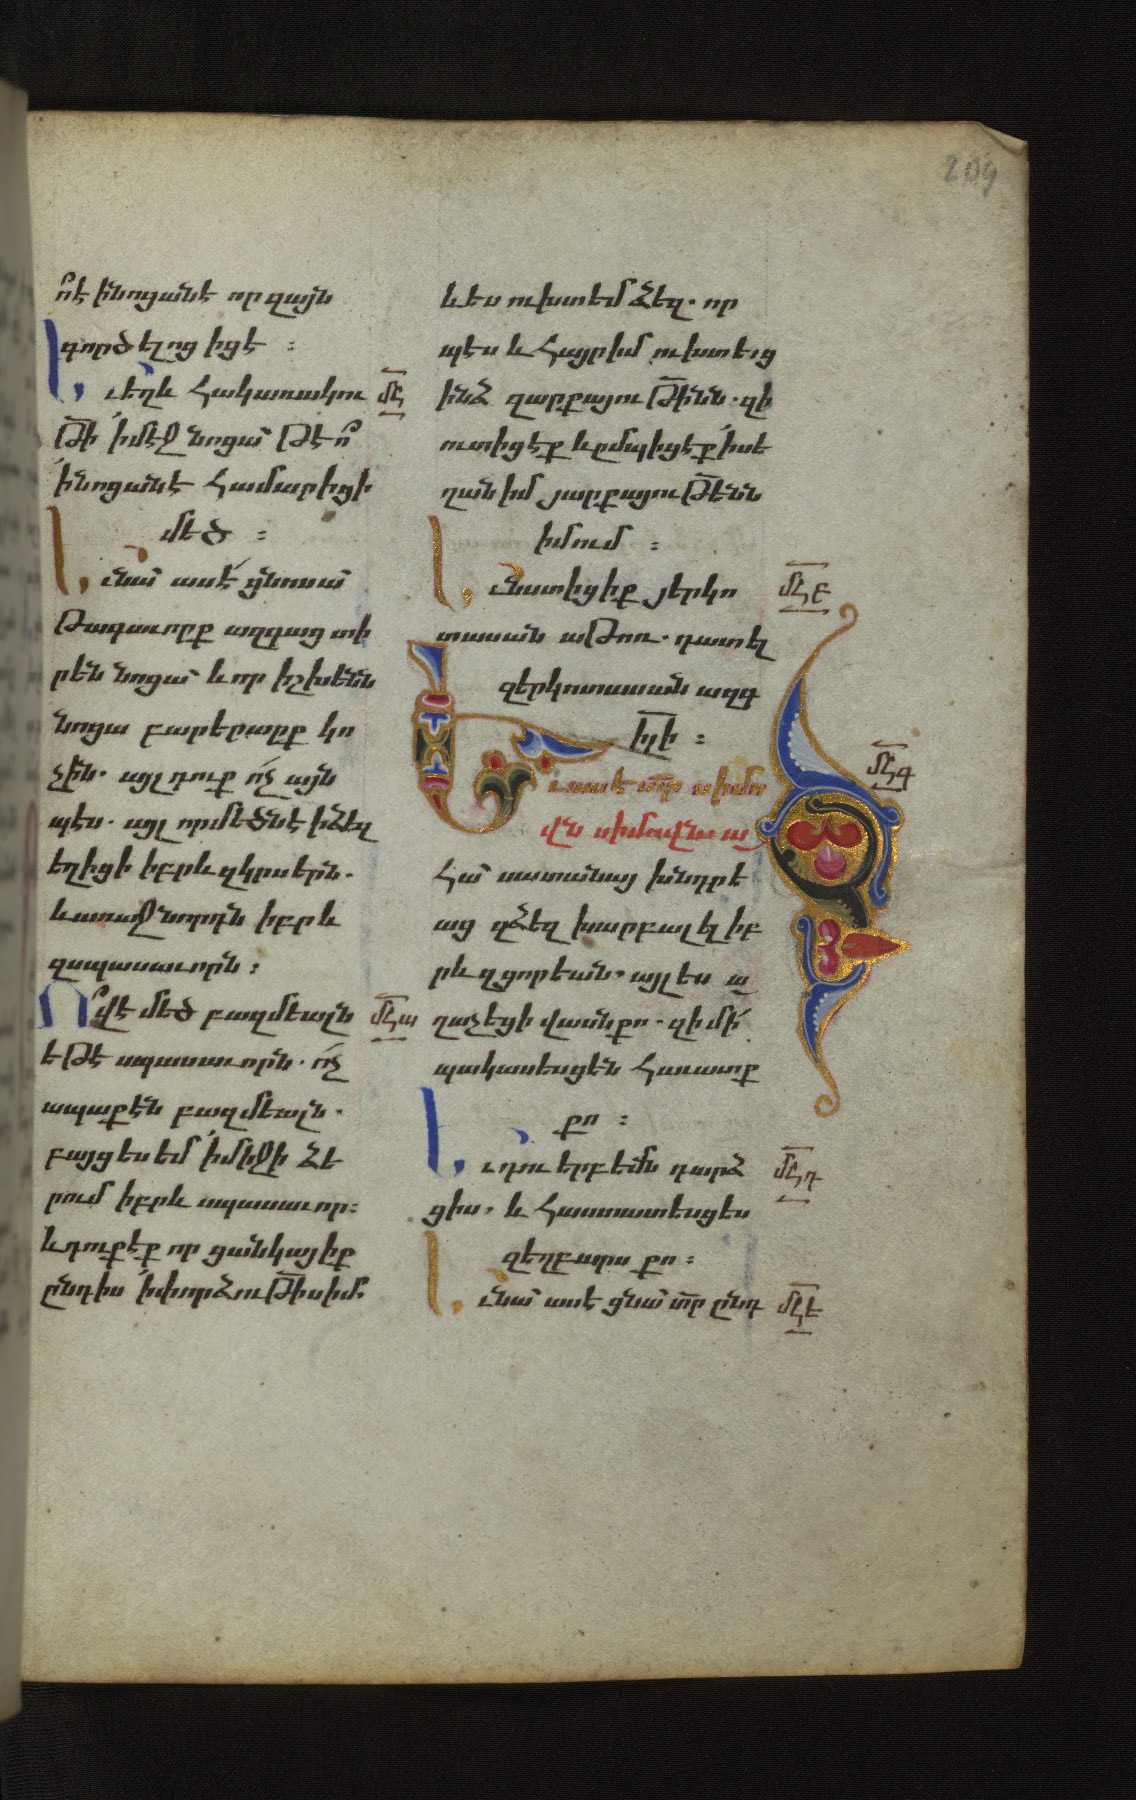 209
ո՞ է ի նոցանէ որ զայն
գործելոց իցէ ։
Եւ եղև հակառակու
թի ի մէջ նոցա՝ թէ ո՞
ի նոցանէ համարիցի
մեծ ։
Եւ նա՝ ասէ ցնոսա՝
Թագաւորք ազգաց տի
րեն նոցա՝ և որ իշխենն
նոցա բարերարք կո
չին. այլ դուք ոչ այն
պէս. այլ որ մեծն է ի ձեզ
եղիցի իբրև զկրսերն.
և առաջնորդն իբրև
զսպասաւորն ։
Ո՞վ է մեծ բազմեալն
եթէ սպասաւորն. ոչ
ապաքէն բազմեալն.
բայց ես եմ ի միջի ձե
րում իբրև սպասաւոր ։
և դուք էք որ ցանկայիք
ընդ իս ի փորձութիս իմ.
մհ
մհա
և ես ուխտեմ ձեզ. որ
պէս և հայր իմ ուխտեաց
ինձ զարքայութինն. զի
ուտիցէք և ըմպիցէք ի սե
ղան իմ յարքայութենն
իմում ։
Եւ նստիցիք յերկո
տասան աթոռ. դատել
զերկոտասան ազգ
իլի ։
Եւ ասէ տր սիմո
վն սիմովն ա
հա՝ սատանայ խնդրե
աց զձեզ խարբալել իբ
րև զցորեան. այլ ես ա
ղաչեցի վասն քո. զի մի՛
պակասեսցեն հաւատք
քո ։
Եւ դու երբեմն դարձ
ցիս. և հաստատեսցես
զեղբարս քո ։
Եւ նա՝ ասէ ցնա՝ տր ընդ
մհբ
մհգ
մհդ
մհե